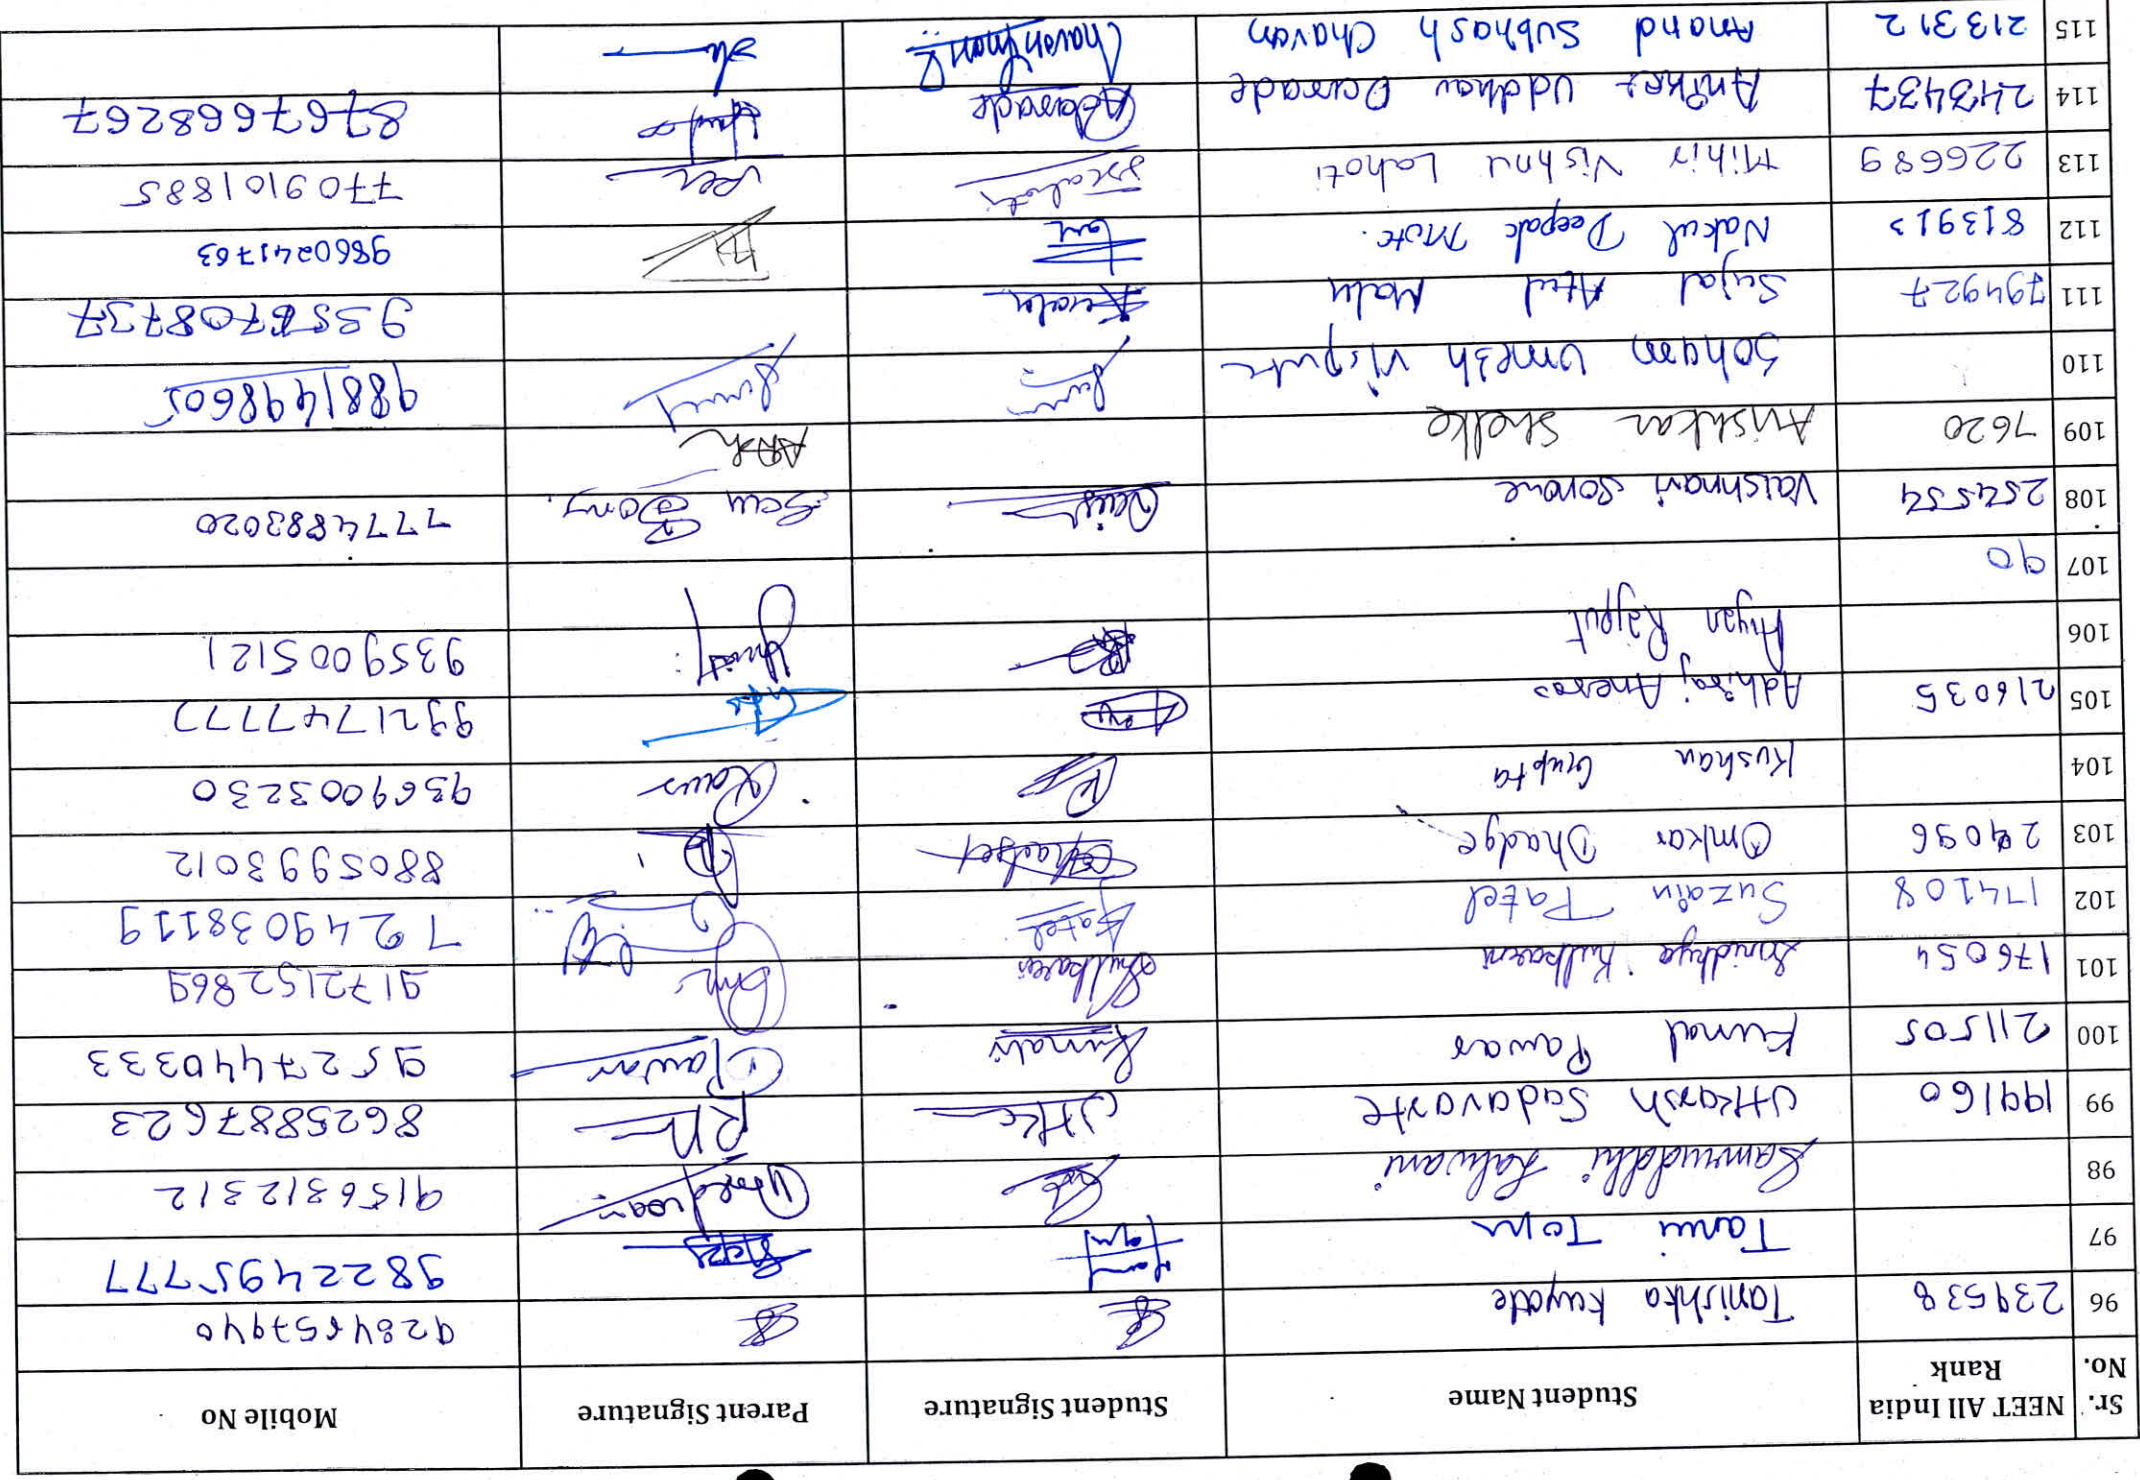 Sr. No. NEET All India Rank Student Name Student Signature Parent Signature Mobile No
96 239538 Tanishka Kuyate 9284657940
97 Tanvi Tom 9822495777
98 Samruddhi Lalwani 9156312312
99 199160 Utkarsh Sadavarte 8625887623
100 211505 Kunal Pawar Kunal Pawar 9527440333
101 176054 Sanidhya Kulkarni Kulkarni 9172152869
102 174108 Suzain Patel Patel 7249038119
103 24096 Omkar Dhadge 8805993012
104 Kushan Gupta 9369003230
105 216035 Adhiraj 9921747777
106 Aryan Rajput 9359005121
107 90
108 254554 Vaishnavi Sonone 7774883020
109 7620 Avishkar Shelke
110 Soham Umesh Vispute 9881498605
111 794927 Sujal Atul Malu 9356708737
112 813913 Nakul Deepak Mote. 9860241763
113 226689 Mihir Vishnu Lahoti 7709101885
114 243437 Aniket Uddhav Darade 8767668267
115 213312 Anand Subhash Chavan